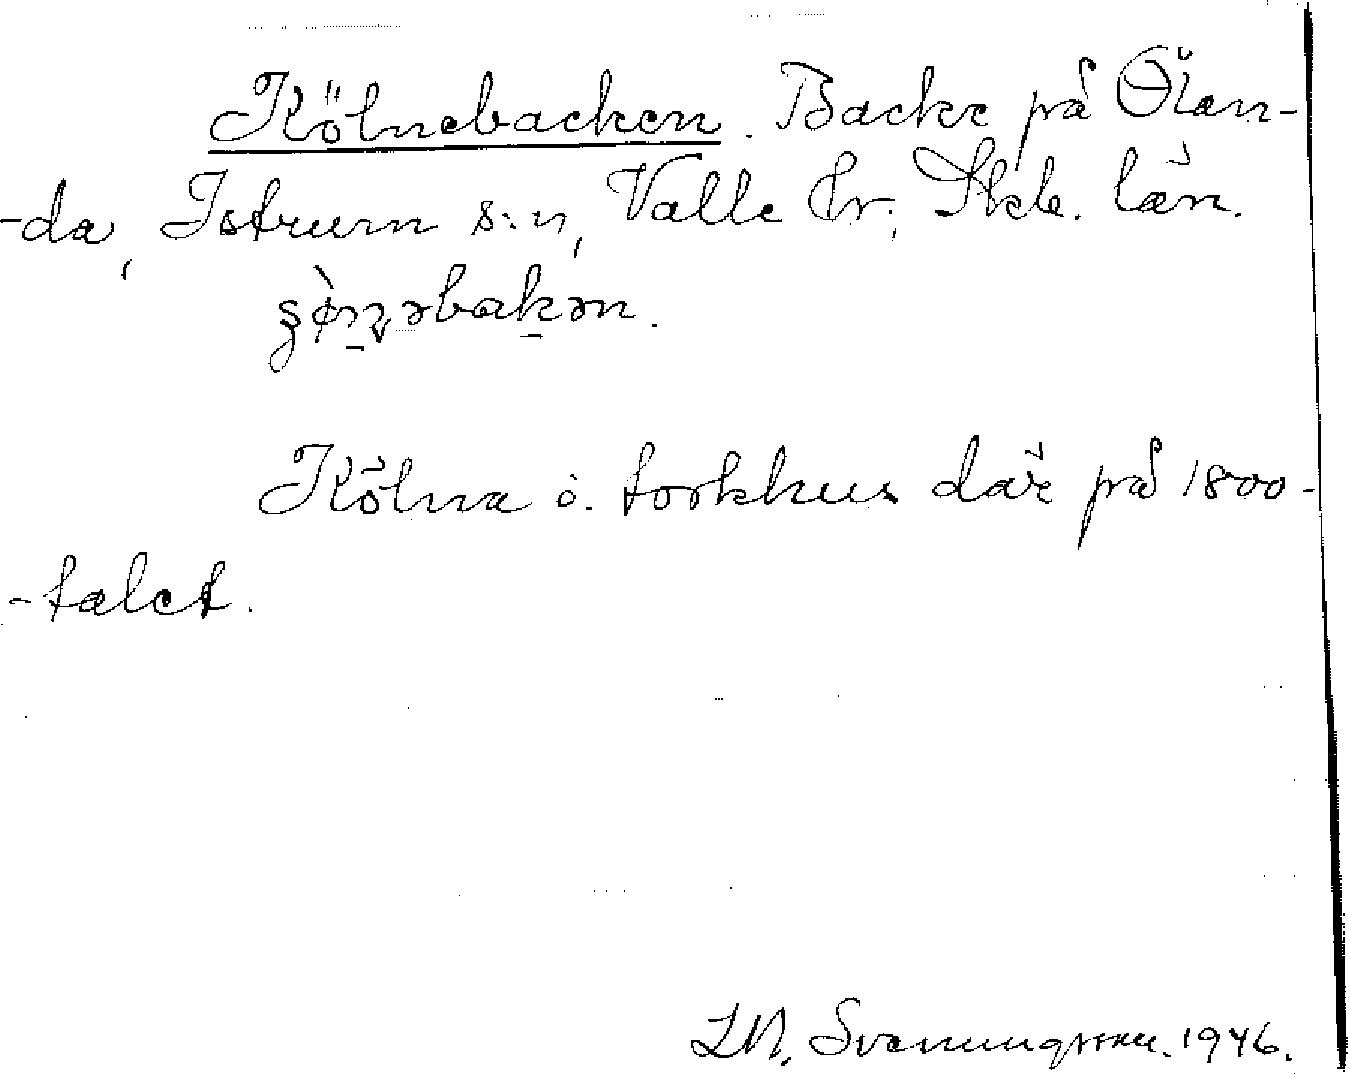 Kölnebacken. Backe på Ölan-
-da, Istrum s:n, Valle hr; Skb. län.
Kölna o. torkhus där på 1800-
-talet.
Svenungsson. 1946.